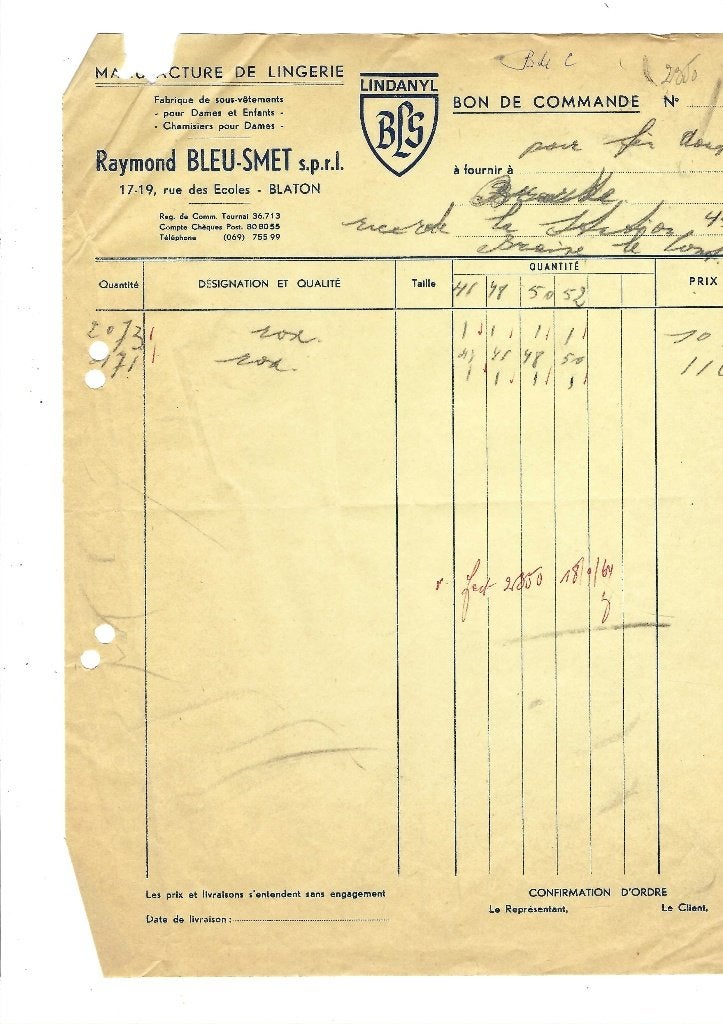 MANUFACTURE DE LINGERIE
Fabrique de sous-vêtements
- pour Dames et Enfants -
- Chemisiers pour Dames -
Raymond BLEU-SMET s.p.r.l.
17-19, rue des Ecoles - BLATON
Reg. de Comm. Tournai 36.713
Compte Chèques Post. 808055
Téléphone (069) 755 99
LINDANYL
BLS
2850
BON DE COMMANDE N°
pour fin
à fournir à
rue de la Station
Braine le Comt
Quantité DESIGNATION ET QUALITÉ Taille QUANTITÉ PRIX
46 48 50 52
2073 1 1 1 1 10
171 46 48 50 110
1 1 1 1
fact 2850 18/9/64
Les prix et livraisons s'entendent sans engagement
Date de livraison :
CONFIRMATION D'ORDRE
Le Représentant, Le Client,